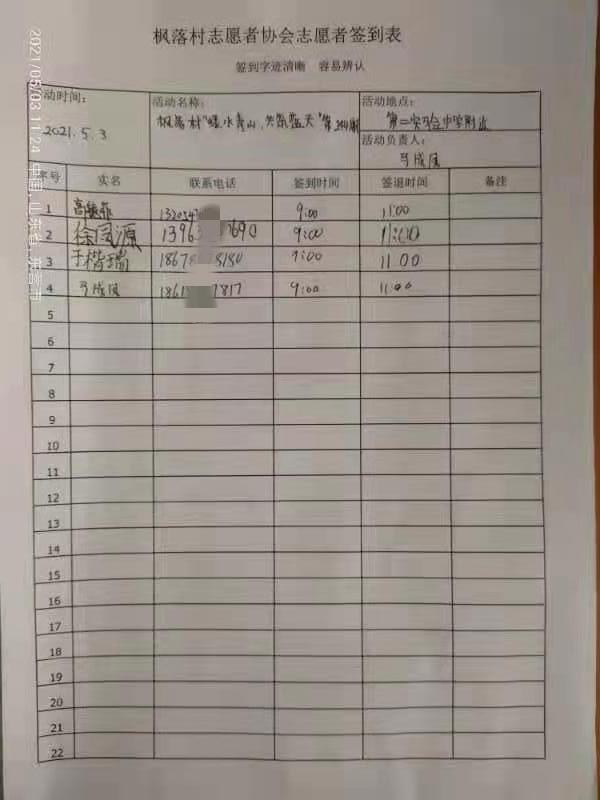 枫落村志愿者协会志愿者签到表
签到字迹清晰 容易辨认
活动时间：
2021.5.3
活动名称：
枫落村"绿水青山，共筑蓝天"第 期
活动地点：
第一实验中学附近
活动负责人：
弓成凤
序号 实名 联系电话 签到时间 签退时间 备注
1 高 9:00 11:00
2 徐国源 1396 7690 9:00 11:00
3 于楷瑞 1867 8180 9:00 11 00
4 弓成凤 1861 7817 9:00 11:00
5
6
7
8
9
10
11
12
13
14
15
16
17
18
19
20
21
22
2021/05/03 11:24 中国, 山东省, 东营市